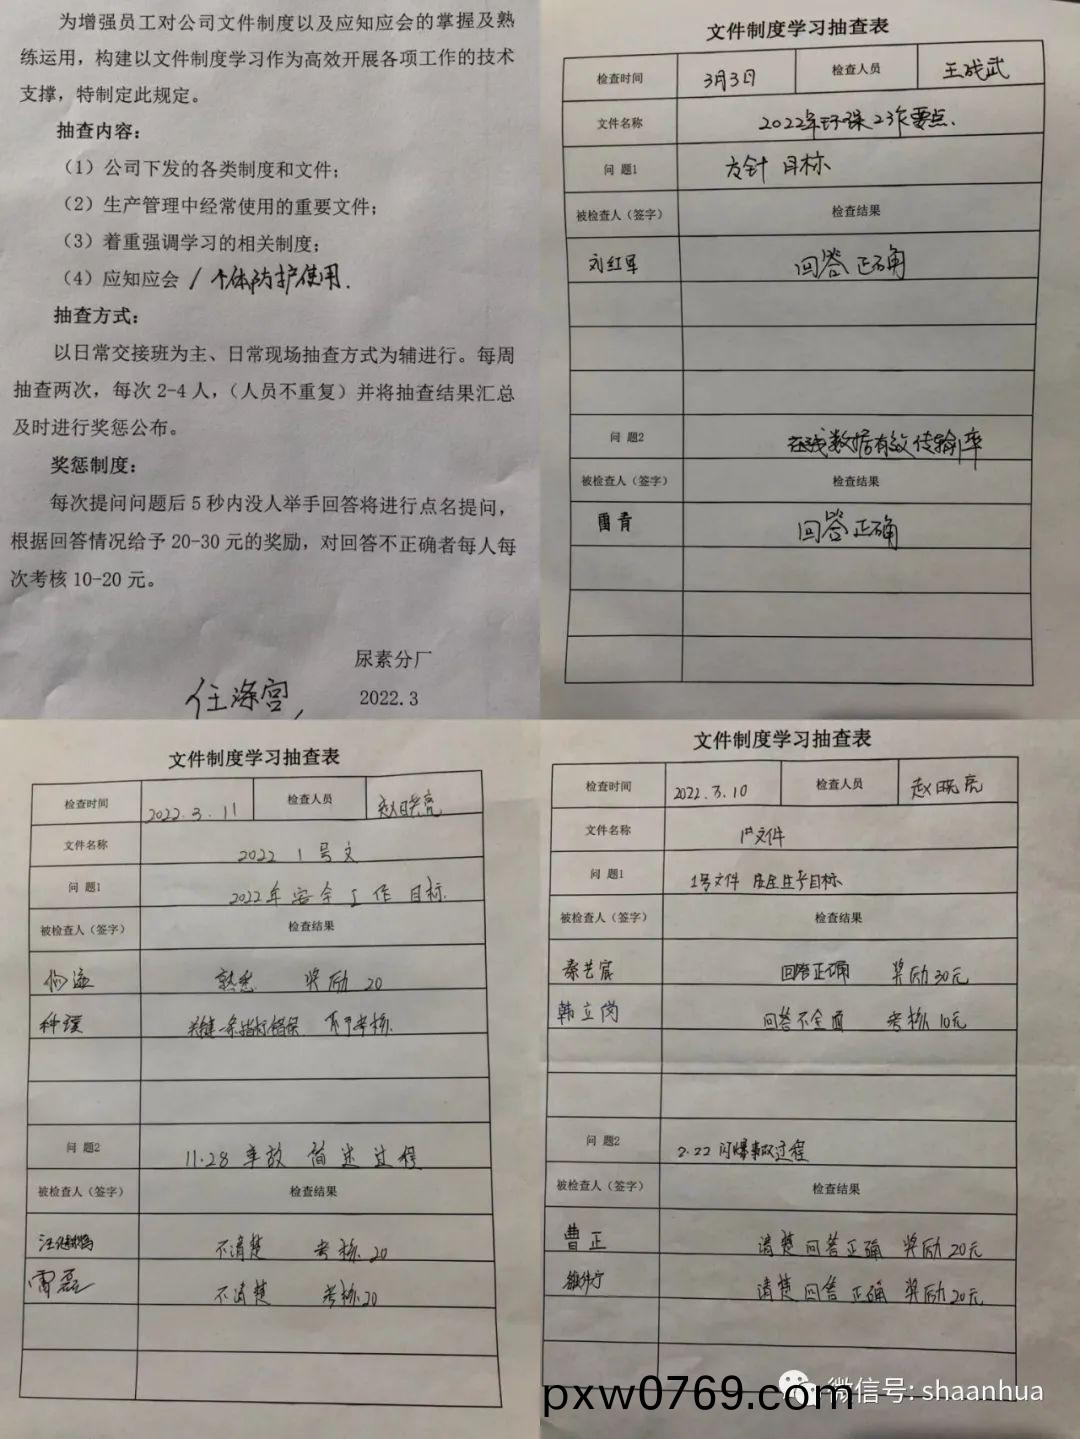 为增强员工对公司文件制度以及应知应会的掌握及熟
练运用，构建以文件制度学习作为高效开展各项工作的技术
支撑，特制定此规定。
抽查内容：
（1）公司下发的各类制度和文件；
（2）生产管理中经常使用的重要文件；
（3）着重强调学习的相关制度；
（4）应知应会 / 个体防护使用.
抽查方式：
以日常交接班为主、日常现场抽查方式为辅进行。每周
抽查两次，每次 2-4 人，（人员不重复）并将抽查结果汇总
及时进行奖惩公布。
奖惩制度：
每次提问问题后 5 秒内没人举手回答将进行点名提问，
根据回答情况给予 20-30 元的奖励，对回答不正确者每人每
次考核 10-20 元。
尿素分厂
2022.3
文件制度学习抽查表
检查时间 3月3日 检查人员
文件名称 2022年环保工作要点.
问 题1 方针 目标
被检查人（签字） 检查结果
刘红军 回答正确
问 题2 在线数据有效传输率
被检查人（签字） 检查结果
雷青 回答正确
文件制度学习抽查表
检查时间 2022.3.11 检查人员 赵晓亮
文件名称 2022 1号文
问 题1 2022年安全工作目标.
被检查人（签字） 检查结果
熟悉 奖励 20
问 题2 11.28 事故 简述过程
被检查人（签字） 检查结果
不清楚 考核 20
雷磊 不清楚 考核 20
文件制度学习抽查表
检查时间 2022.3.10 检查人员 赵晓亮
文件名称 1#文件
问 题1 1号文件 安全生产目标
被检查人（签字） 检查结果
秦艺宸 回答正确 奖励30元
韩立岗 回答不全面 考核10元
问 题2 2.22 闪爆事故过程
被检查人（签字） 检查结果
曹正 清楚 回答正确 奖励20元
清楚 回答正确 奖励20元
微信号: shaanhua
pxw0769.com